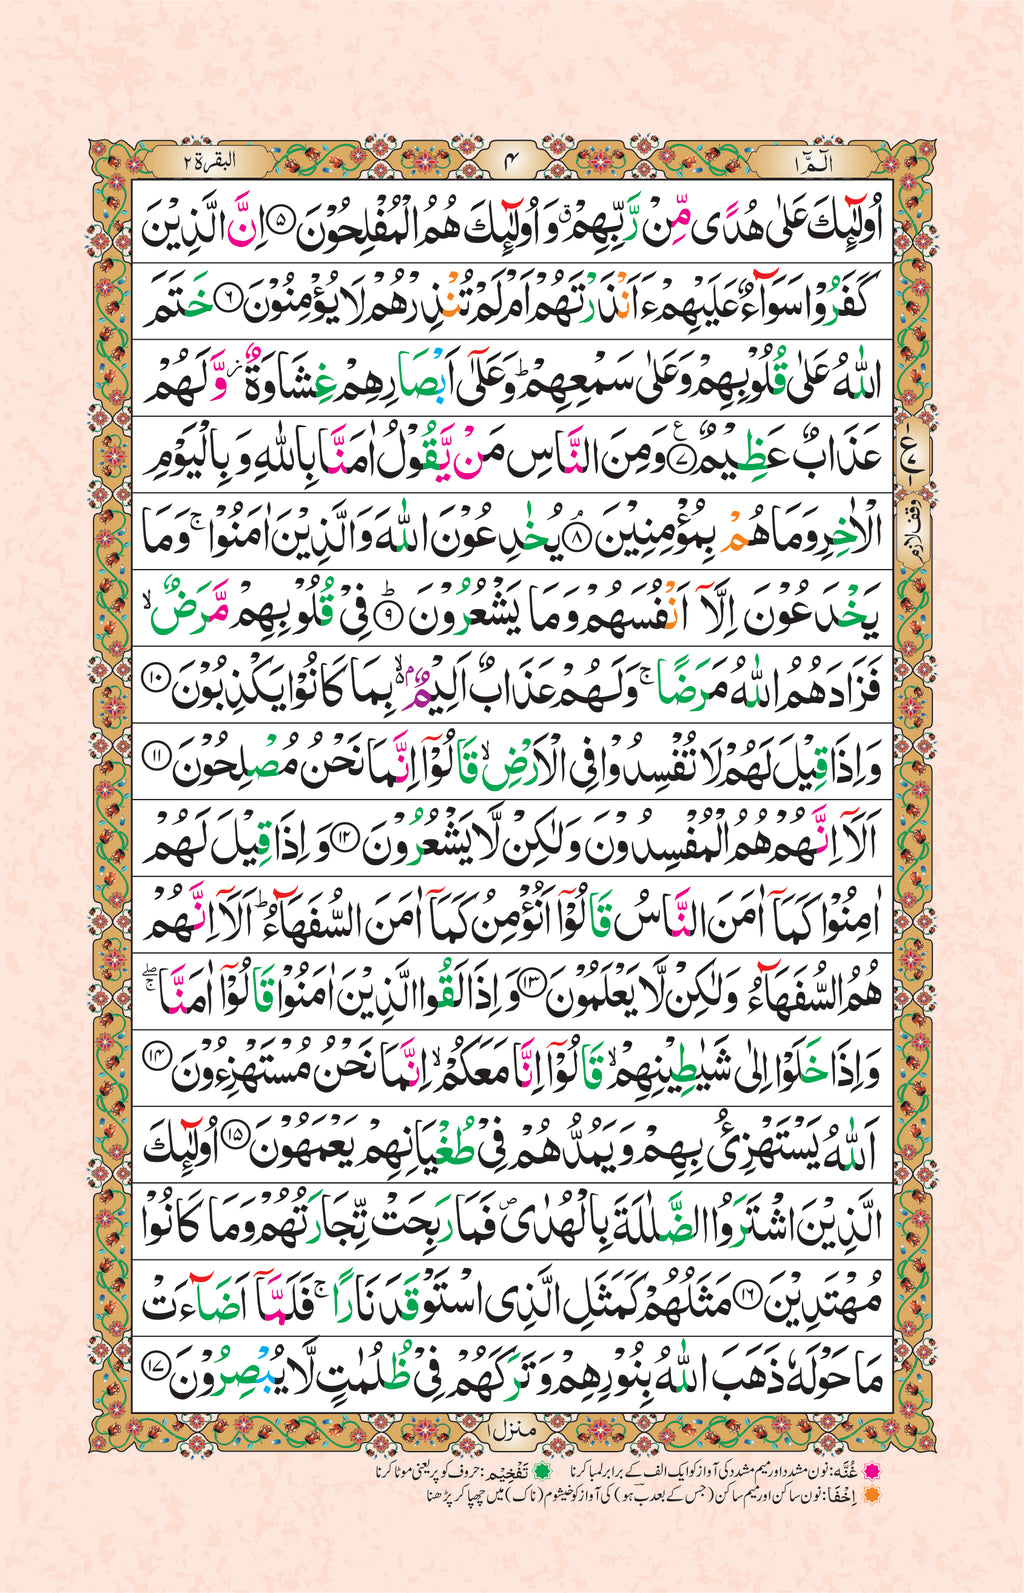 الٓمّٓ ۱
۴
البقرۃ ۲
اُولٰٓئِكَ عَلٰى هُدًى مِّنْ رَّبِّهِمْ ۗ وَ اُولٰٓئِكَ هُمُ الْمُفْلِحُوْنَ ۵ اِنَّ الَّذِيْنَ
كَفَرُوْا سَوَآءٌ عَلَيْهِمْ ءَاَنْذَرْتَهُمْ اَمْ لَمْ تُنْذِرْهُمْ لَا يُؤْمِنُوْنَ ۶ خَتَمَ
اللّٰهُ عَلٰى قُلُوْبِهِمْ وَعَلٰى سَمْعِهِمْ ؕ وَعَلٰٓى اَبْصَارِهِمْ غِشَاوَةٌ ۫ وَّ لَهُمْ
عَذَابٌ عَظِيْمٌ ۷ ع وَمِنَ النَّاسِ مَنْ يَّقُوْلُ اٰمَنَّا بِاللّٰهِ وَ بِالْيَوْمِ
الْاٰخِرِ وَمَا هُمْ بِمُؤْمِنِيْنَ ۘ ۸ يُخٰدِعُوْنَ اللّٰهَ وَ الَّذِيْنَ اٰمَنُوْا ۚ وَمَا
يَخْدَعُوْنَ اِلَّاۤ اَنْفُسَهُمْ وَ مَا يَشْعُرُوْنَ ؕ ۹ فِىْ قُلُوْبِهِمْ مَّرَضٌ ۙ
فَزَادَهُمُ اللّٰهُ مَرَضًا ۚ وَلَهُمْ عَذَابٌ اَلِيْمٌ ۢ ۙ بِمَا كَانُوْا يَكْذِبُوْنَ ۱۰
وَ اِذَا قِيْلَ لَهُمْ لَا تُفْسِدُوْا فِى الْاَرْضِ ۙ قَالُوْٓا اِنَّمَا نَحْنُ مُصْلِحُوْنَ ۱۱
اَلَاۤ اِنَّهُمْ هُمُ الْمُفْسِدُوْنَ وَ لٰكِنْ لَّا يَشْعُرُوْنَ ۱۲ وَ اِذَا قِيْلَ لَهُمْ
اٰمِنُوْا كَمَاۤ اٰمَنَ النَّاسُ قَالُوْٓا اَنُؤْمِنُ كَمَاۤ اٰمَنَ السُّفَهَآءُ ؕ اَلَاۤ اِنَّهُمْ
هُمُ السُّفَهَآءُ وَ لٰكِنْ لَّا يَعْلَمُوْنَ ۱۳ وَ اِذَا لَقُوا الَّذِيْنَ اٰمَنُوْا قَالُوْٓا اٰمَنَّا ۚ ۖ
وَ اِذَا خَلَوْا اِلٰى شَيٰطِيْنِهِمْ ۙ قَالُوْٓا اِنَّا مَعَكُمْ ۙ اِنَّمَا نَحْنُ مُسْتَهْزِءُوْنَ ۱۴
اَللّٰهُ يَسْتَهْزِئُ بِهِمْ وَ يَمُدُّهُمْ فِىْ طُغْيَانِهِمْ يَعْمَهُوْنَ ۱۵ اُولٰٓئِكَ
الَّذِيْنَ اشْتَرَوُا الضَّلٰلَةَ بِالْهُدٰى ۪ فَمَا رَبِحَتْ تِّجَارَتُهُمْ وَمَا كَانُوْا
مُهْتَدِيْنَ ۱۶ مَثَلُهُمْ كَمَثَلِ الَّذِى اسْتَوْقَدَ نَارًا ۚ فَلَمَّاۤ اَضَآءَتْ
مَا حَوْلَهٗ ذَهَبَ اللّٰهُ بِنُوْرِهِمْ وَ تَرَكَهُمْ فِىْ ظُلُمٰتٍ لَّا يُبْصِرُوْنَ ۱۷
وقف لازم
منزل ۱
غُنَّہ: نون مشدد اور میم مشدد کی آواز کو ایک الف کے برابر لمبا کرنا تَفْخِیْم: حروف کو پُر یعنی موٹا کرنا
اِخْفَا: نون ساکن اور میم ساکن (جس کے بعد ب ہو) کی آواز کو خیشوم (ناک) میں چھپا کر پڑھنا